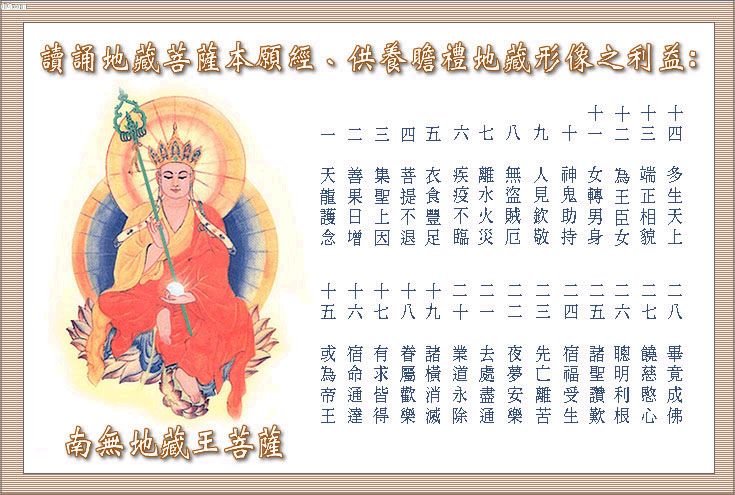 讀誦地藏菩薩本願經、供養瞻禮地藏形像之利益：
一 天龍護念
二 善果日增
三 集聖上因
四 菩提不退
五 衣食豐足
六 疾疫不臨
七 離水火災
八 無盜賊厄
九 人見欽敬
十 神鬼助持
十一 女轉男身
十二 為王臣女
十三 端正相貌
十四 多生天上
十五 或為帝王
十六 宿命通達
十七 有求皆得
十八 眷屬歡樂
十九 諸橫消滅
二十 業道永除
二一 去處盡通
二二 夜夢安樂
二三 先亡離苦
二四 宿福受生
二五 諸聖讚歎
二六 聰明利根
二七 饒慈愍心
二八 畢竟成佛
南無地藏王菩薩